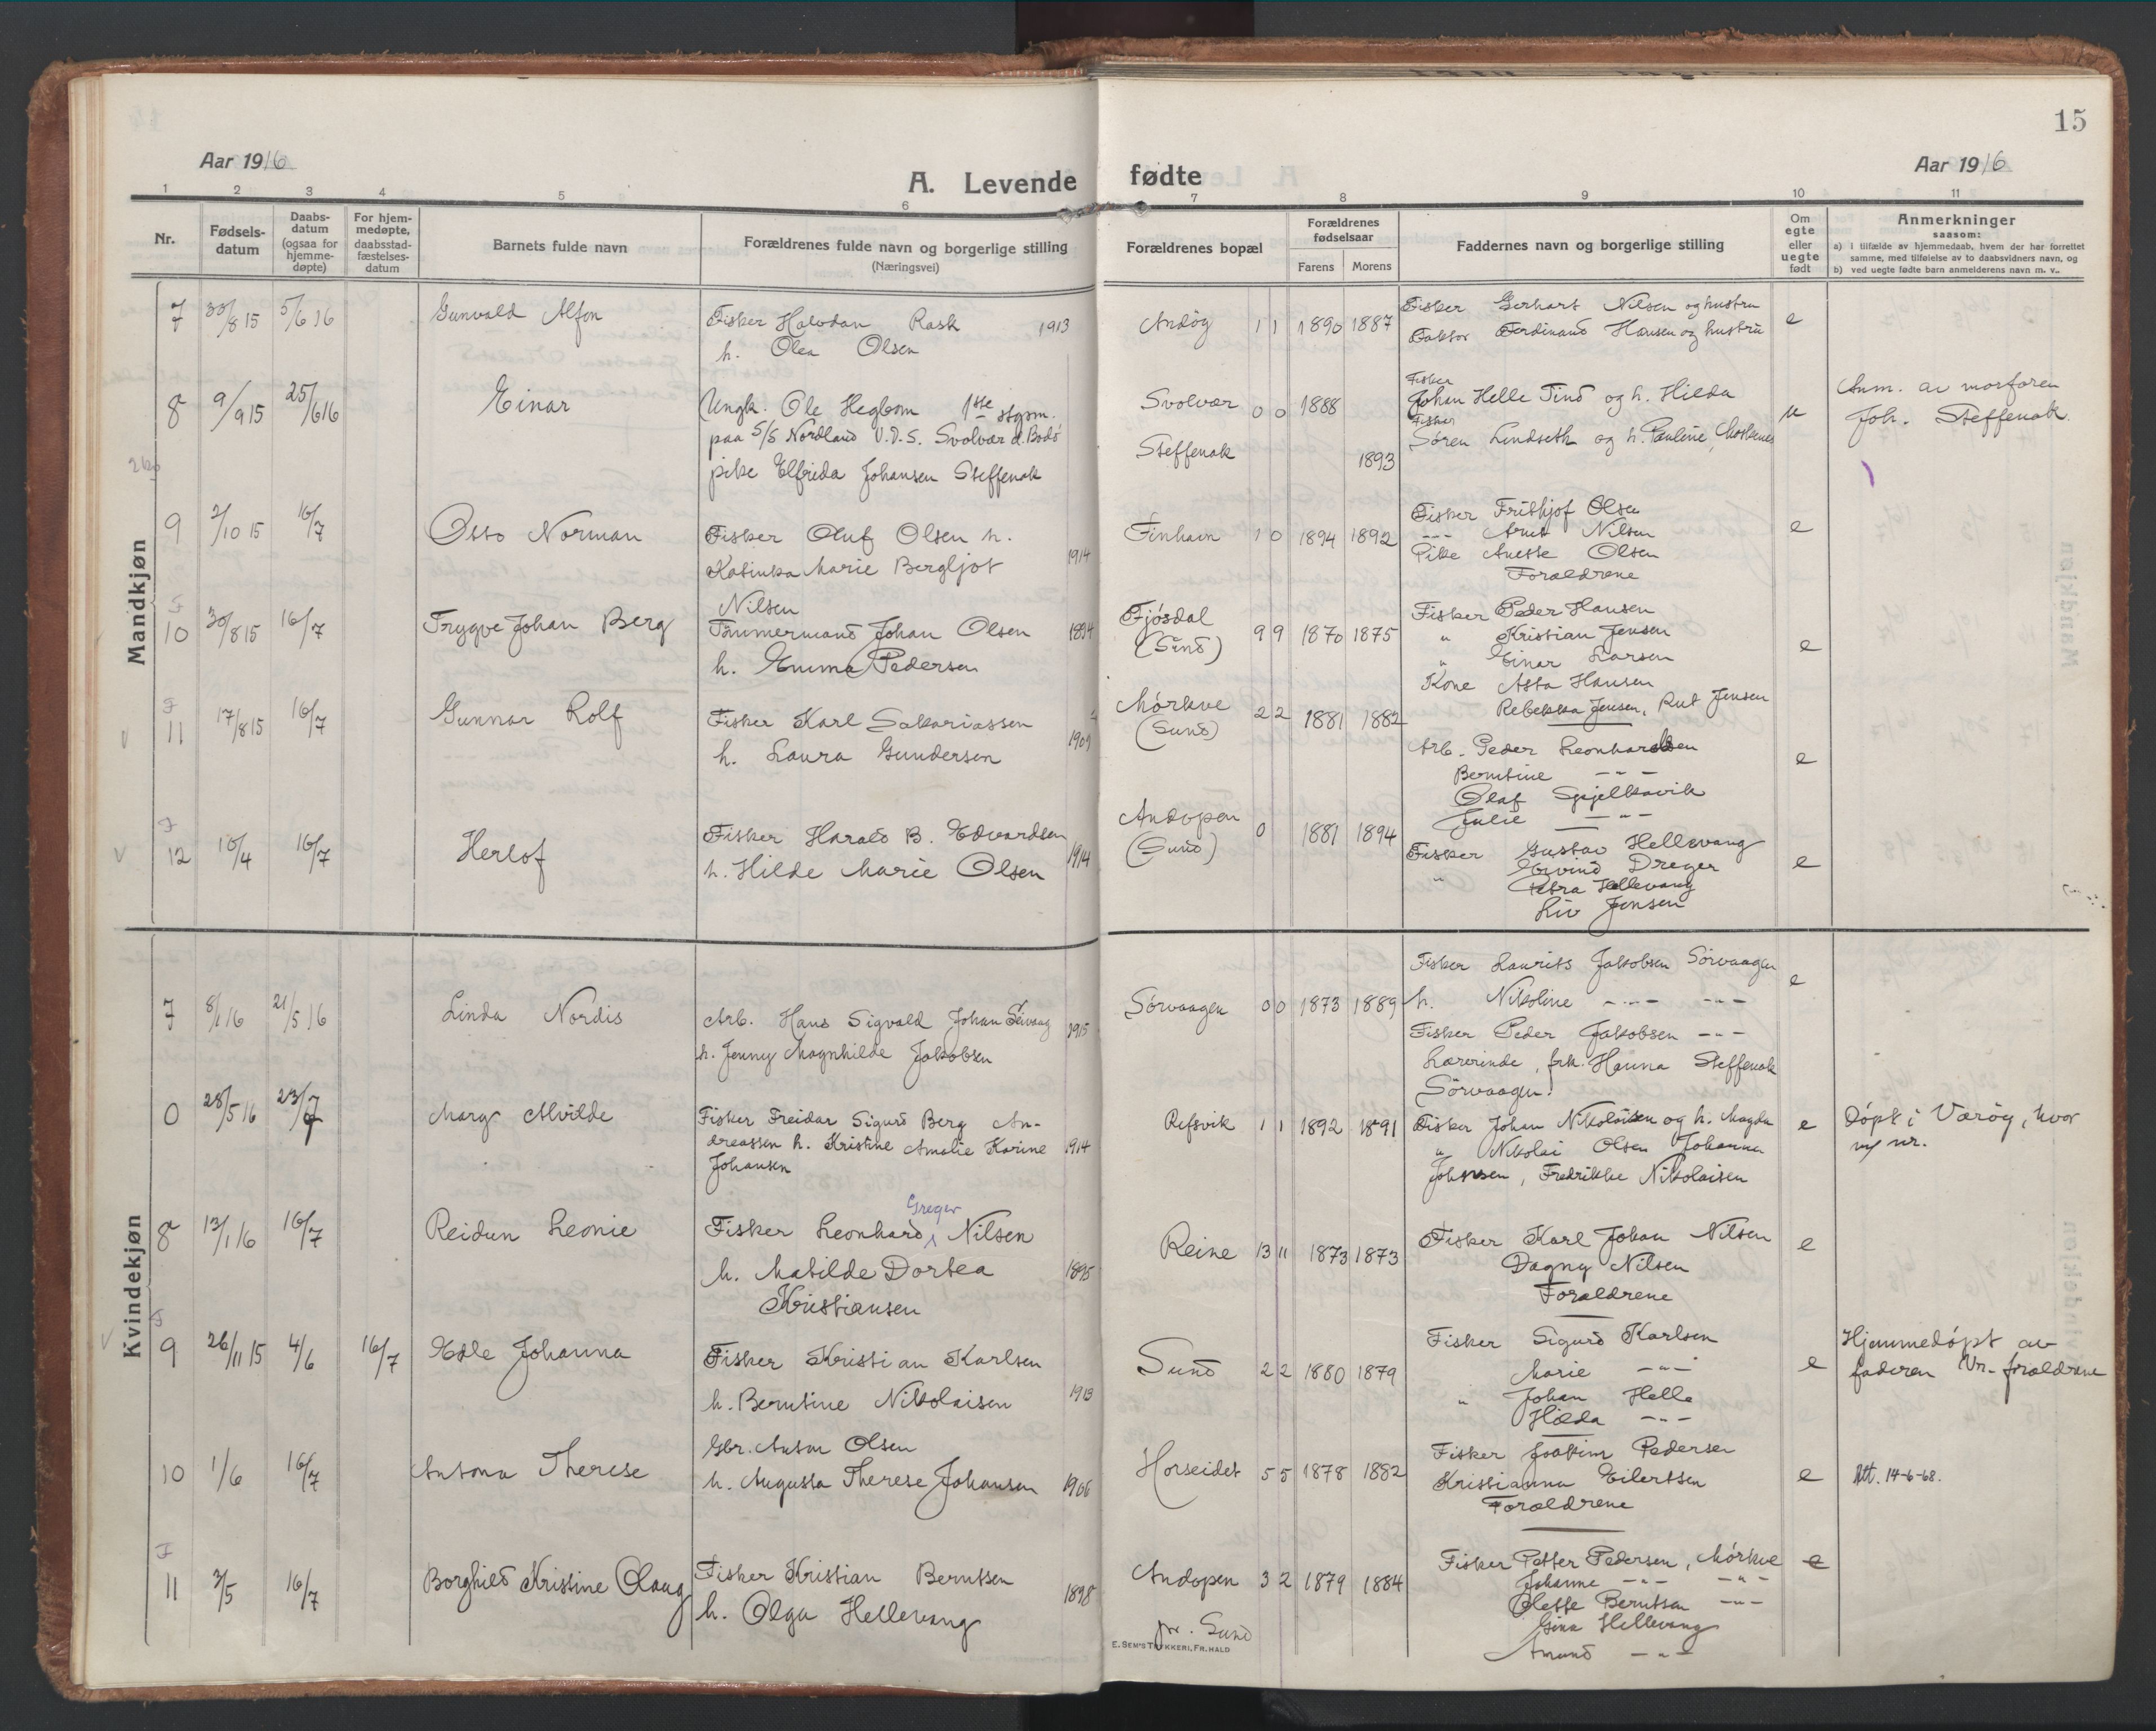 15
Aar 1916
A. Levende fødte
Aar 1916
1 2 3 4 5 6 7 8 9 10 11
Nr.
Fødsels-
datum
Daabs-
datum
(ogsaa for
hjemme-
døpte)
For hjem-
medøpte,
daabsstad-
fæstelses-
datum
Barnets fulde navn
Forældrenes fulde navn og borgerlige stilling
(Næringsvei)
Forældrenes bopæl
Forældrenes
fødselsaar
Farens Morens
Faddernes navn og borgerlige stilling
Om
egte
eller
uegte
født
Anmerkninger
saasom:
a) i tilfælde av hjemmedaab, hvem der har forrettet
samme, med tilføielse av to daabsvidners navn, og
b) ved uegte fødte barn anmelderens navn m. v.
Mandkjøn
7 30/8 15 5/6 16 Gunvald Alfon
Fisker Halvdan Rask 1913
h. Olea Olsen
Andøg 1 1 1890 1887
Fisker Gerhart Nilsen og hustru
Faktor Ferdinand Hansen og hustru
e
8 9/9 15 25/6 16 Einar
Ungk. Ole Hegbom 1ste stypm.
paa S/S Nordland V.D.S. Svolvær d. Bodö
pike Elfrida Johansen Steffenak
Svolvær 0 0 1888
Steffenak 1893
Fisker
Johan Helle Tind og h. Hilda
Fisker
Søren Lindseth og h. Pauline, Moskenes
u
Anm. av morfaren
Joh. Steffenak.
9 2/10 15 16/7 Otto Norman
Fisker Oluf Olsen h.
Katinka Marie Bergljot 1914
Nilsen
Finhavn 1 0 1894 1892
Fisker Frithjof Olsen
-"- Arnt Nilsen
Pike Anette Olsen
Forældrene
e
F
10 30/8 15 16/7 Trygve Johan Berg
Tømmermand Johan Olsen 1894
h. Emma Pedersen
Fjösdal
(Sund)
9 9 1870 1875
Fisker Peder Hansen
" Kristian Jensen
" Einar Larsen
Kone Asta Hansen
Rebekka Jensen, Rut Jensen
e
F
11 17/8 15 16/7 Gunnar Rolf
Fisker Karl Sakariassen
h. Laura Gundersen 1909
Mörkve
(Sund)
2 2 1881 1882
Arb. Peder Leonhardsen
Berntine -"-
Olaf Spjelkavik
Julie -"-
e
F
12 16/4 16/7 Herlof
Fisker Harald B. Edvardsen
h. Hilde Marie Olsen 1914
Andopen
(Sund)
0 1881 1894
Fisker Gustav Hellevang
" Eivind Dreyer
Petra Hellevang
Liv Jensen
e
Kvindekjøn
7 8/1 16 21/5 16 Linda Nordis
Arb. Hans Sigvald Johan Seivaag 1915
h. Jenny Magnhilde Jakobsen
Sörvaagen 0 0 1873 1889
Fisker Laurits Jakobsen Sörvaagen
h. Nikoline -"- -"-
Fisker Peder Jakobsen -"-
Lærerinde, frk. Hanna Steffenak
Sörvaagen.
e
0 28/5 16 23/7 Mary Alvilde
Fisker Freidar Sigurd Berg An-
dreassen h. Kristine Amalie Karine 1914
Johansen
Refsvik 1 1 1892 1891
Fisker Johan Nikolaisen og h. Magda
" Nikolai Olsen Johanna
Johnsen, Fredrikke Nikolaisen
e
Döpt i Værøy, hvor
m/ nr.
8 13/1 16 16/7 Reidun Leonie
Greger
Fisker Leonhard Nilsen
h. Matilde Dortea 1895
Kristiansen
Reine 13 11 1873 1873
Fisker Karl Johan Nilsen
Dagny Nilsen
Forældrene
e
F
9 26/11 15 4/6 16/7 Edle Johanna
Fisker Kristian Karlsen
h. Berntine Nikolaisen 1913
Sund 2 2 1880 1879
Fisker Sigurd Karlsen
Marie -"-
" Johan Helle
Hilda -"-
e
Hjemmedöpt av
faderen Vn. forældrene
10 1/6 16/7 Antona Therese
Gbr. Anton Olsen
h. Augusta Therese Johansen 1906
Horseidet 5 5 1878 1882
Fisker Joakim Pedersen
Kristianna Eilertsen
Forældrene
e
Att. 14-6-68.
F
11 3/5 16/7 Borghild Kristine Olaug
Fisker Kristian Berntsen
h. Olga Hellevang 1898
Andopen 3 2 1879 1884
pr. Sund
Fisker Petter Pedersen, Mörkve
Johanne -"- -"-
Olette Berntsen -"-
Gina Hellevang
Amund -"-
e
E. SEM'S TRYKKERI, FR.HALD